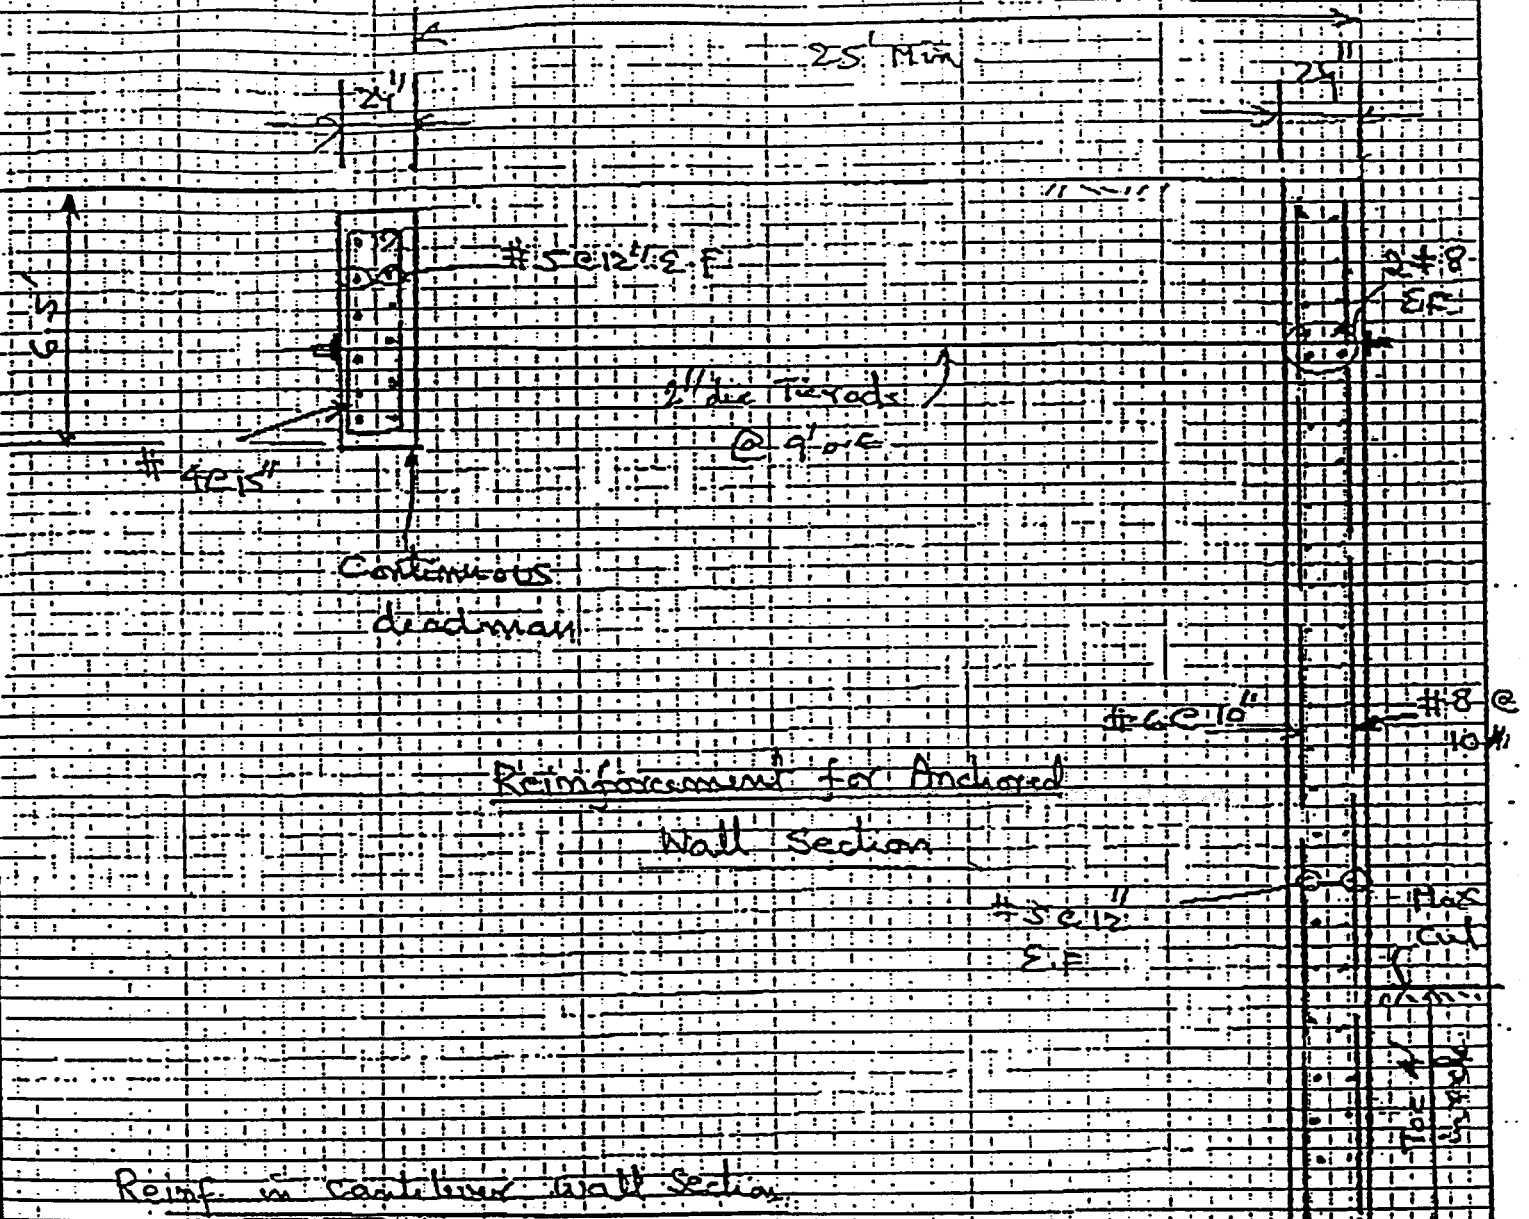 25' Min
24"
24"
6.5'
#5@12" E.F
2#8
E.F.
2" dia Tierods
@ 9' o.c
#4@15"
Continuous
deadman
#6@10"
#8@
10"
Reinforcement for Anchored
Wall Section
#5@12"
E.F
Max
Cut
Toe
in
Reinf. in cantilever Wall Section